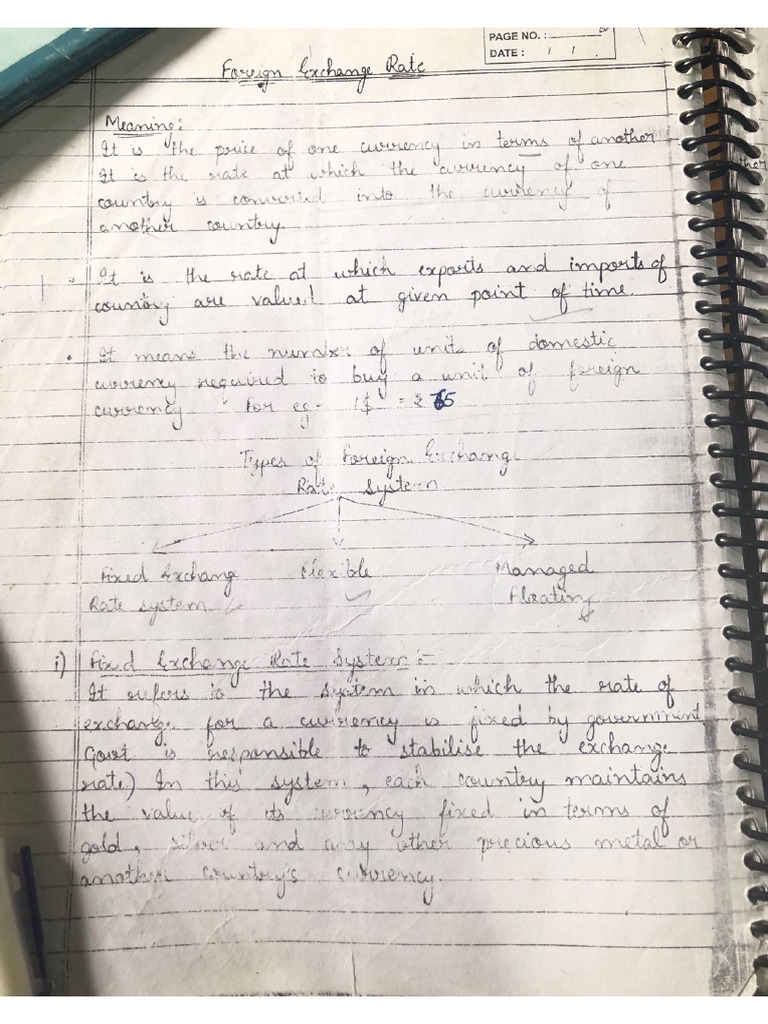 PAGE NO. :
DATE : / /
Foreign Exchange Rate
Meaning:
It is the price of one currency in terms of another
It is the rate at which the currency of one
country is converted into the currency of
another country.
It is the rate at which exports and imports of
country are valued at given point of time.
• It means the number of units of domestic
currency required to buy a unit of foreign
currency For eg- 1$ = ₹
Types of Foreign Exchange
Rate System
Fixed Exchang Flexible Managed
Rate system Floating
i) Fixed Exchange Rate System :-
It refers to the system in which the rate of
exchange for a currency is fixed by government
Govt is responsible to stabilise the exchange
rate.) In this system, each country maintains
the value of its currency fixed in terms of
gold, silver and any other precious metal or
another country's currency.